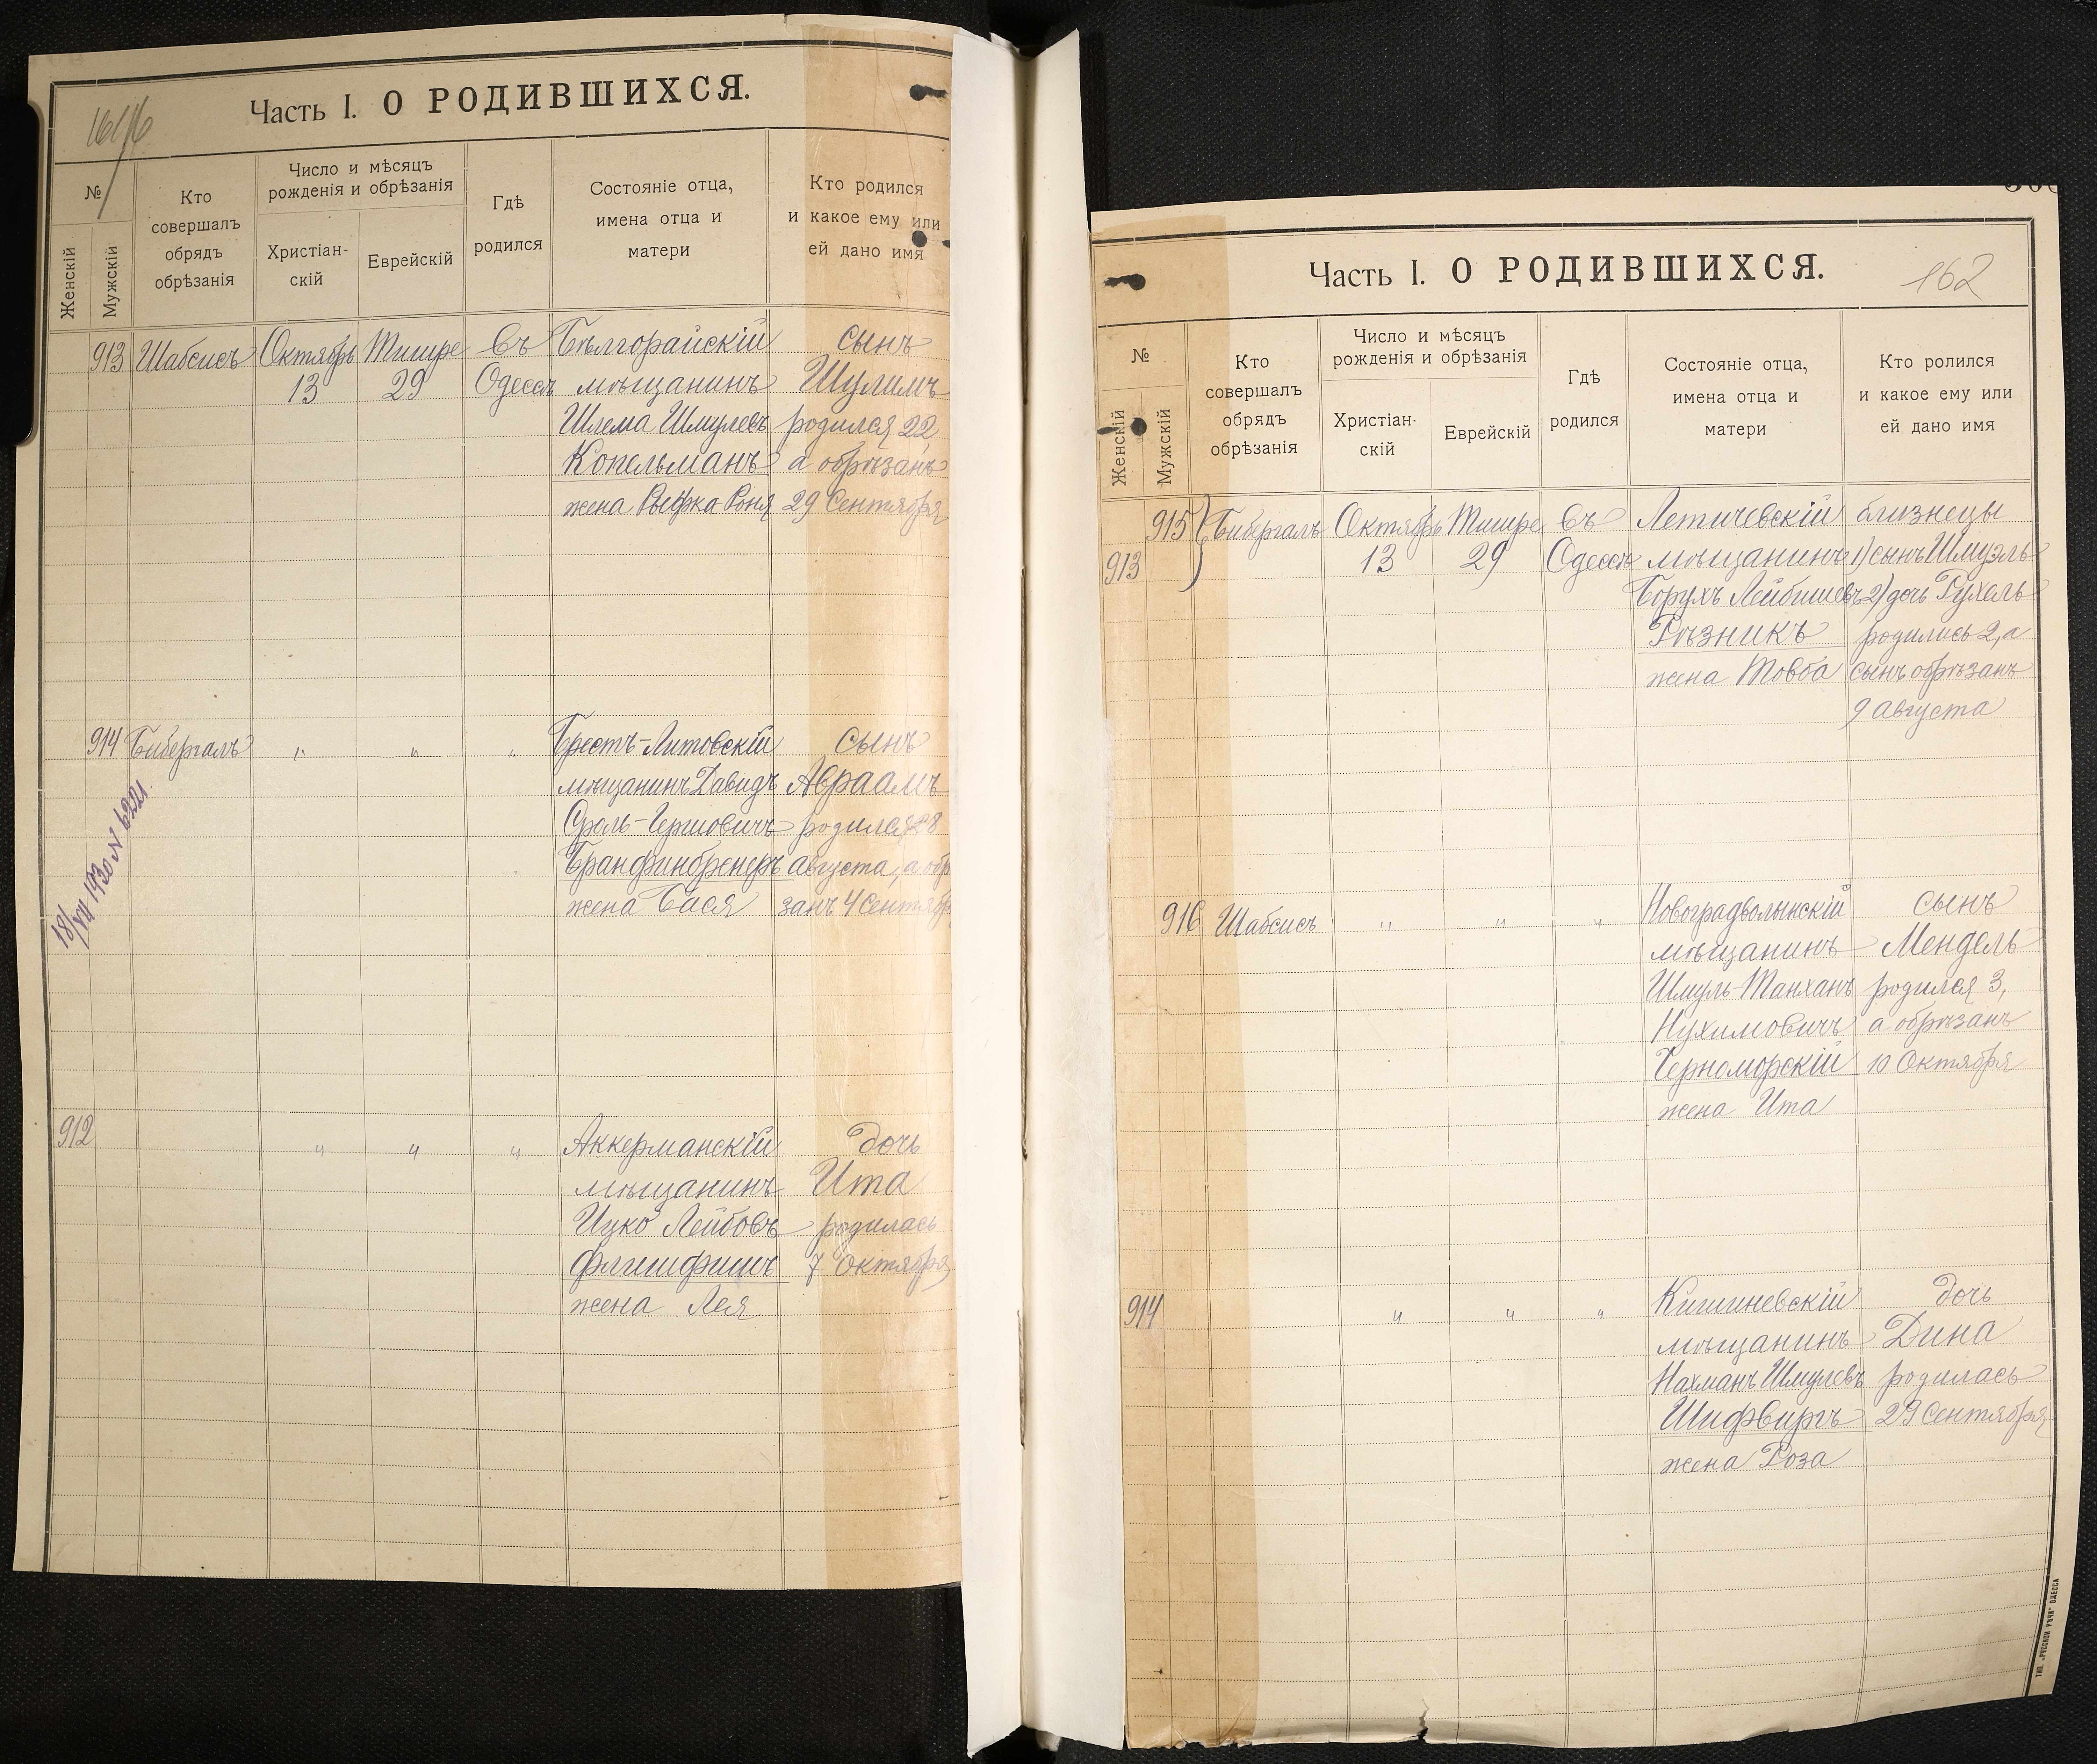 161/6
Часть I. О РОДИВШИХСЯ.
№
Женскій
Мужскій
Кто
совершалъ
обрядъ
обрѣзанія
Число и мѣсяцъ
рожденія и обрѣзанія
Христіан-
скій
Еврейскій
Гдѣ
родился
Состояніе отца,
имена отца и
матери
Кто родился
и какое ему или
ей дано имя
913 Шабсисъ Октябрь Тишре въ Бѣлгорайскій сынъ
13 29 Одессѣ мѣщанинъ Шулимъ
Шлема Шмулевъ родился 22,
Копельманъ а обрѣзанъ
жена Рыфка Роня 29 Сентября
914 Бибергалъ " " " Брестъ-Литовскій сынъ
мѣщанинъ Давидъ Авраамъ
Сроль-Гершовичъ родился 28
августа, а обр
жена Бася занъ 4 Сентябр
18/XII 1930 N 6221
912 " " " Аккерманскій дочь
мѣщанинъ Ита
Ицко Лейбовъ родилась
Флишфишъ 7 Октября
жена Лея
162
Часть I. О РОДИВШИХСЯ.
№
Женскій
Мужскій
Кто
совершалъ
обрядъ
обрѣзанія
Число и мѣсяцъ
рожденія и обрѣзанія
Христіан-
скій
Еврейскій
Гдѣ
родился
Состояніе отца,
имена отца и
матери
Кто ролился
и какое ему или
ей дано имя
915 Бибергалъ Октябрь Тишре въ Летичевскій близнецы
913 13 29 Одессѣ мѣщанинъ 1) сынъ Шмуэль
Борухъ Лейбишевъ 2) дочь Рухель
Рѣзникъ родились 2, а
жена Товба сынъ обрѣзанъ
9 августа
916 Шабсисъ " " " Новоградволынскій сынъ
мѣщанинъ Мендель
Шмуль-Танханъ родился 3,
Нухимовичъ а обрѣзанъ
Черноморскій 10 Октября
жена Ита
914 " " " Кишиневскій дочь
мѣщанинъ Дина
Нахманъ Шмулевъ родилась
Шифвиргъ 29 Сентября
жена Роза
ТИП. „РУССКОЙ РѢЧИ" ОДЕССА